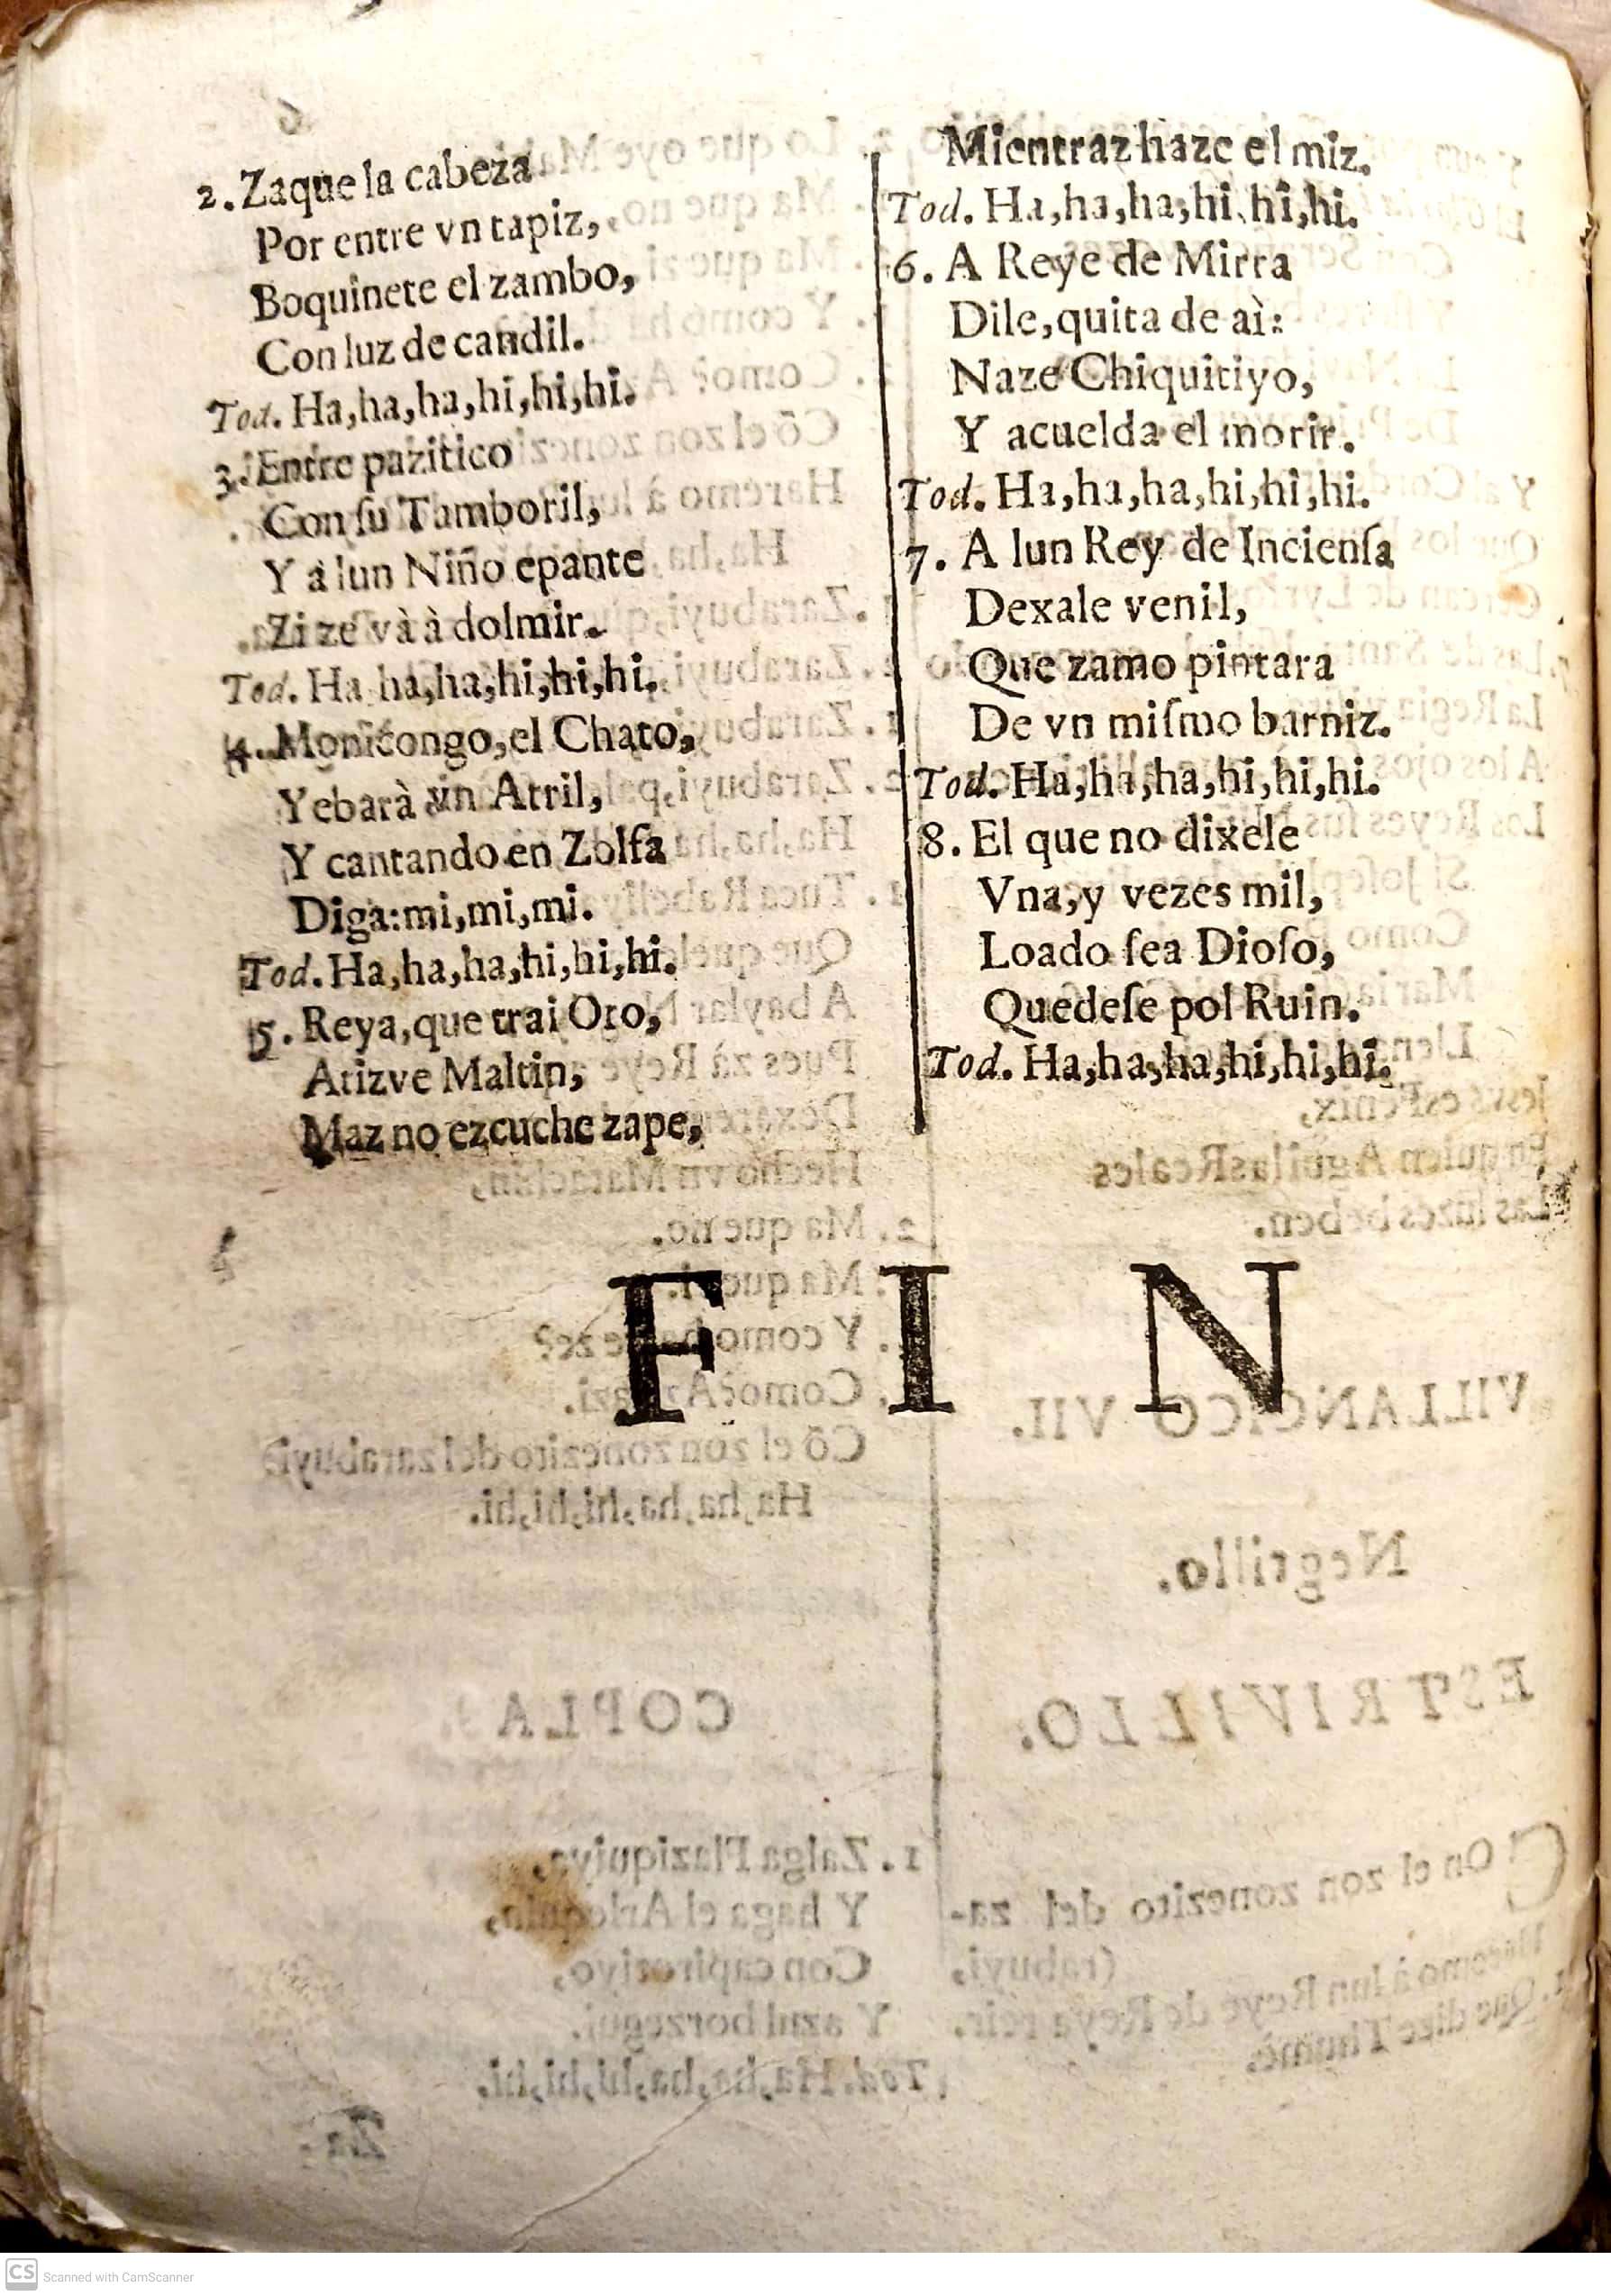 2. Zaque la cabeza
Por entre vn tapiz,
Boquinete el zambo,
Con luz de candil.
Tod. Ha,ha,ha,hi,hi,hi.
3. Entre pazitico
Con ſu Tamboril,
Y à lun Niño epante
Zi ze và à dolmir.
Tod. Ha ha,ha,hi,hi,hi.
4. Monicongo,el Chato,
Yebarà vn Atril,
Y cantando en Zolfa
Diga:mi,mi,mi.
Tod. Ha,ha,ha,hi,hi,hi.
5. Reya,que trai Oro,
Atizve Maltin,
Maz no ezcuche zape,
Mientraz haze el miz.
Tod. Ha,ha,ha,hi,hi,hi.
6. A Reye de Mirra
Dile,quita de aì:
Naze Chiquitiyo,
Y acuelda el morir.
Tod. Ha,ha,ha,hi,hi,hi.
7. A lun Rey de Incienſa
Dexale venil,
Que zamo pintara
De vn miſmo barniz.
Tod. Ha,ha,ha,hi,hi,hi.
8. El que no dixele
Vna,y vezes mil,
Loado ſea Dioſo,
Quedeſe pol Ruin.
Tod. Ha,ha,ha,hi,hi,hi.
F I N
CS Scanned with CamScanner